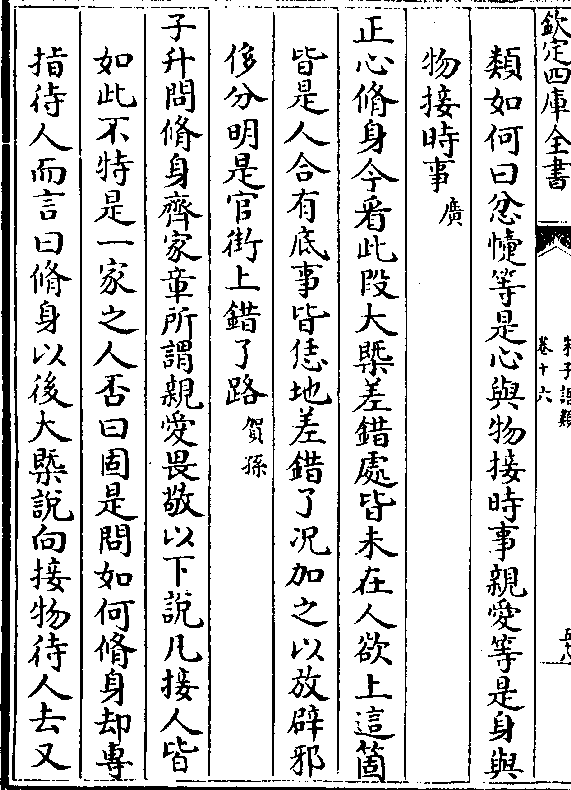 欽定四庫全書
朱子語類
卷十六
類如何曰忿懥等是心與物接時事親愛等是身與
物接時事廣
正心脩身今看此段大槩差錯處皆未在人欲上這箇
皆是人合有底事皆恁地差錯了况加之以放辟邪
侈分明是官街上錯了路賀孫
子升問脩身齊家章所謂親愛畏敬以下說凡接人皆
如此不特是一家之人否曰固是問如何脩身却專
指待人而言曰脩身以後大槩說向接物待人去又